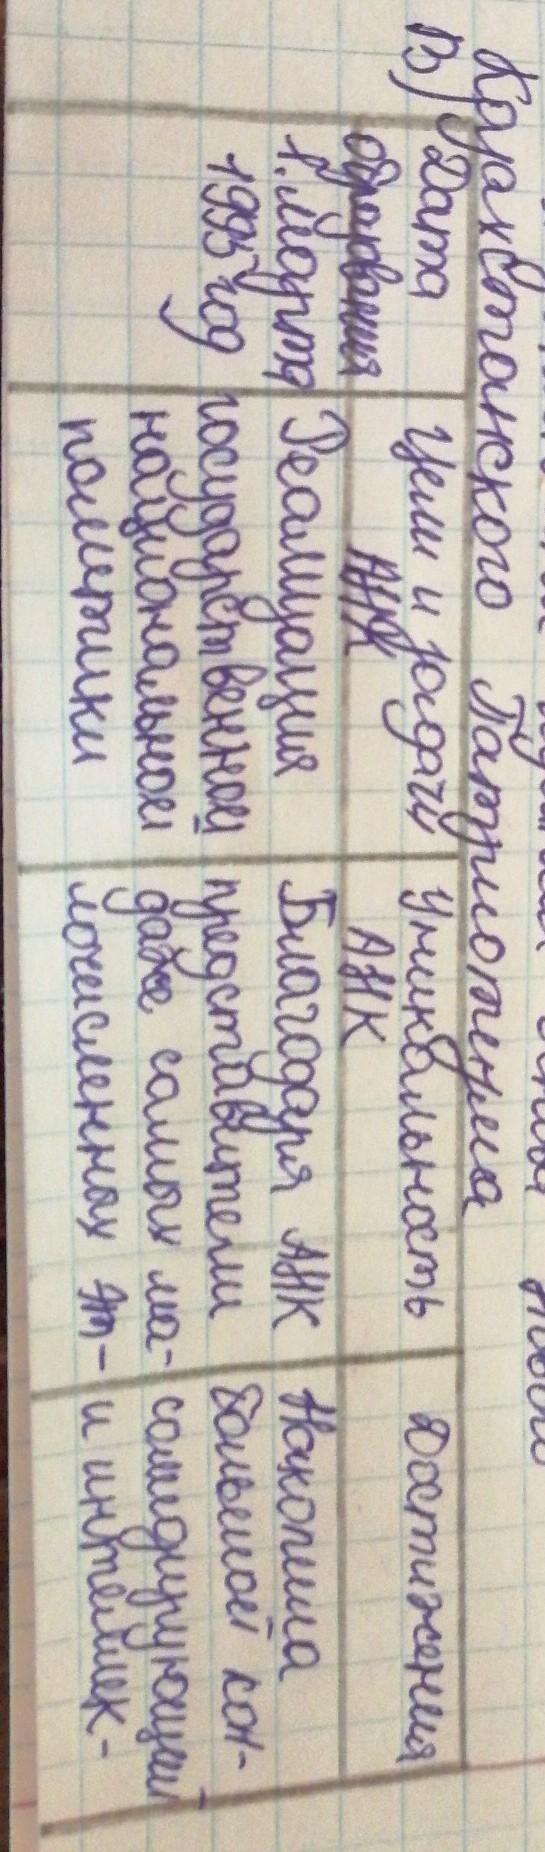 Казахстанского Патриотизма
В)
Дата
образования
Цели и задачи
АНК
Уникальность
АНК
Достижения
1 марта
1995 год
Реализация
государственной
национальной
политики
Благодаря АНК
представители
даже самых ма-
лочисленных эт-
Накопила
большой кон-
солидирующий
и интеллек-